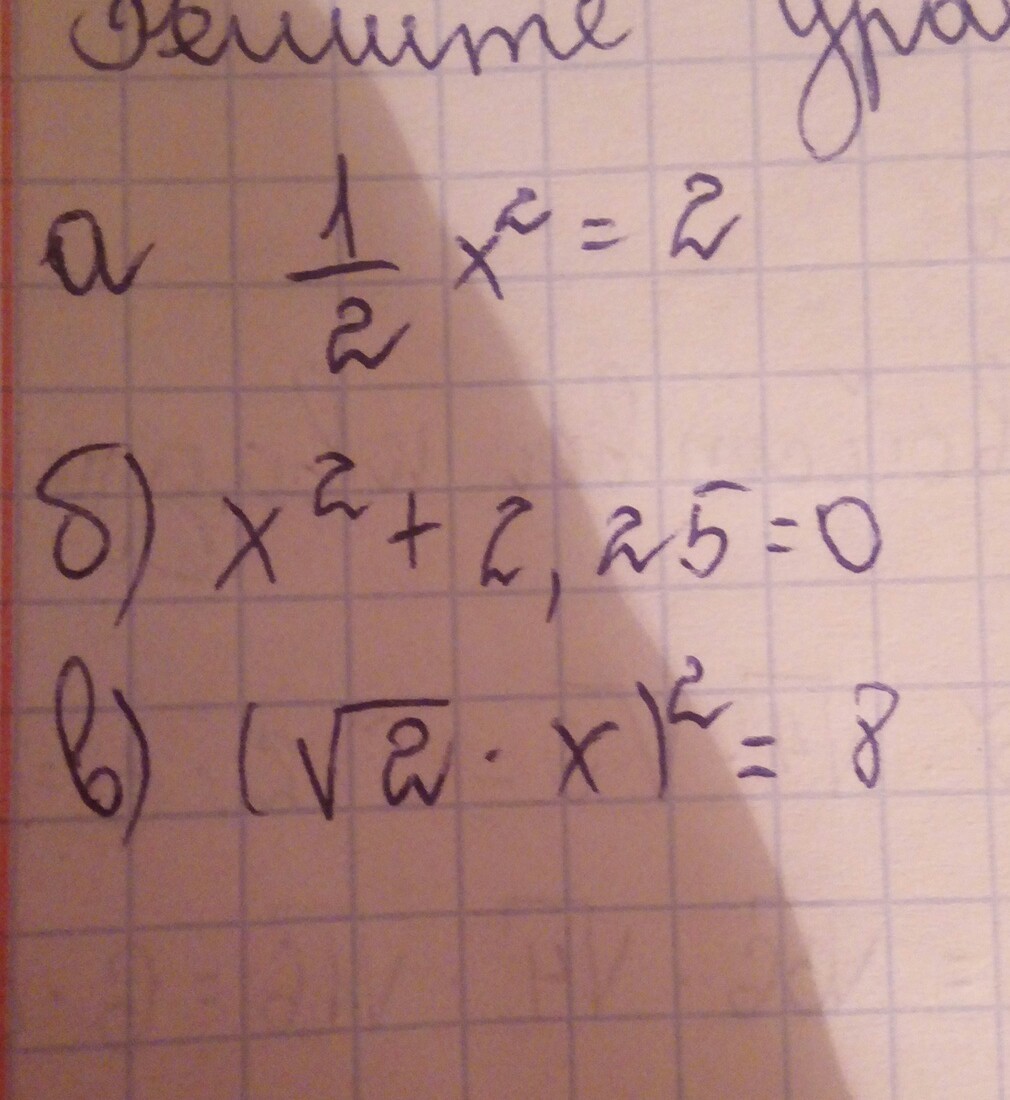 Решите ура
а 1/2 x² = 2
б) x² + 2,25 = 0
в) (√2 · x)² = 8